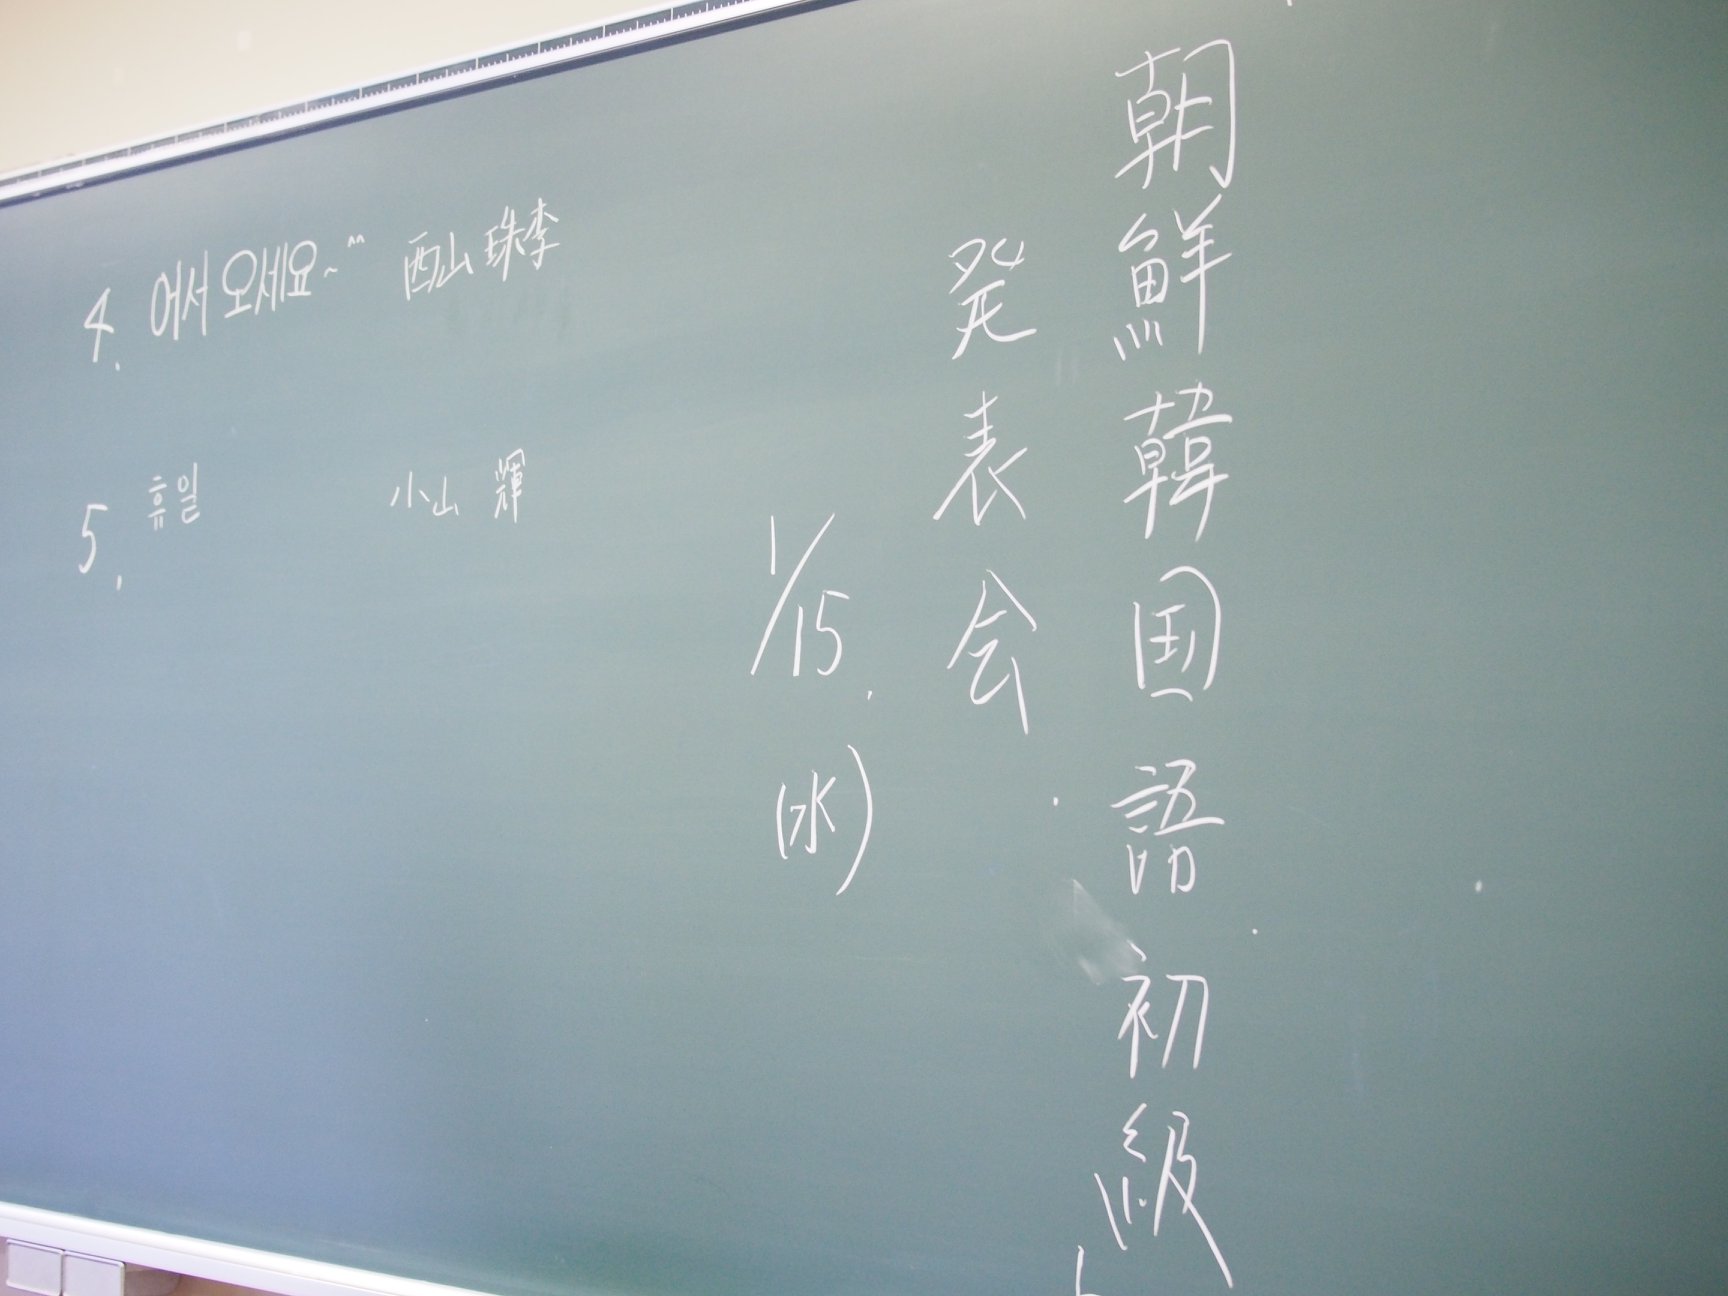 朝鮮韓国語初級
発表会
1/15.
(水)
4. 어서 오세요~^^ 西山 珠李
5. 휴일 小山 輝